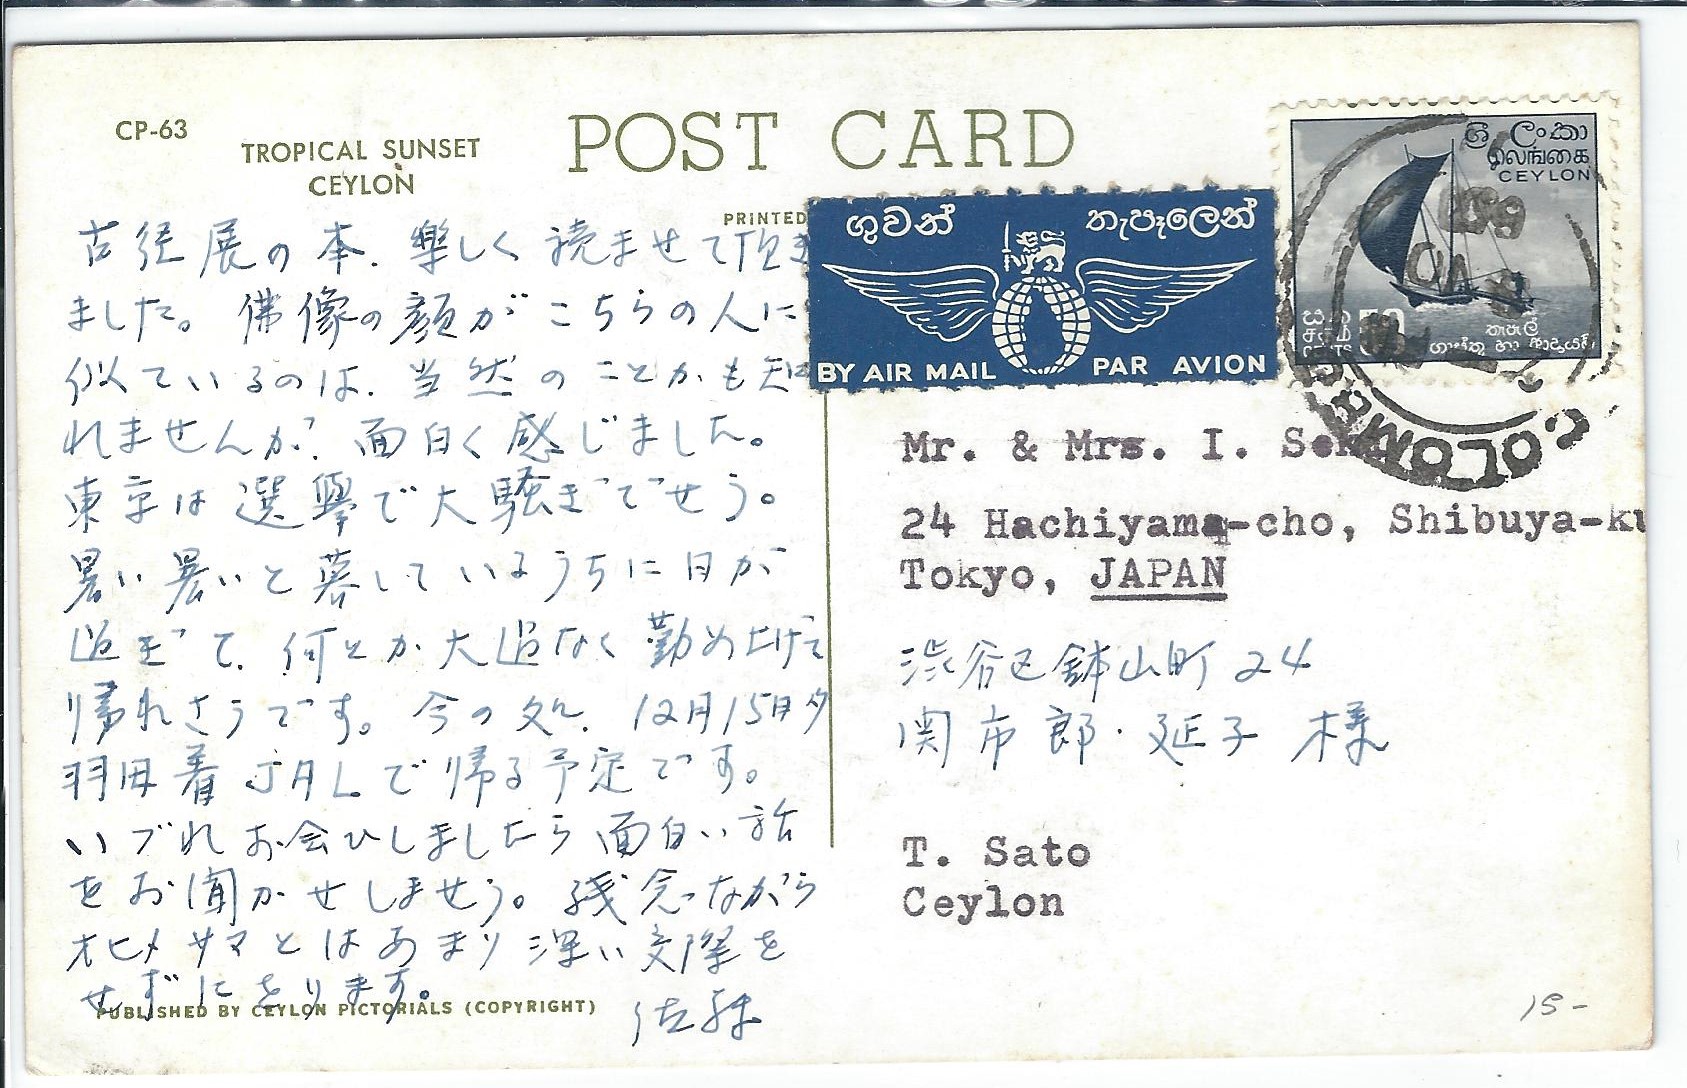 CP-63
TROPICAL SUNSET
CEYLON
POST CARD
PRINTED
古径展の本、楽しく読ませて頂き
ました。佛像の顔がこちらの人に
似ているのは、当然のことかも知
れませんが、面白く感じました。
東京は選擧で大騒ぎでせう。
暑い暑いと暮しているうちに日が
過ぎて、何とか大過なく勤め上げて
帰れさうです。今の処、12月15日夕
羽田着JALで帰る予定です。
いづれお会ひしましたら面白い話
をお聞かせしませう。残念ながら
オヒメサマとはあまり深い交際を
せずにをります。
佐藤
PUBLISHED BY CEYLON PICTORIALS (COPYRIGHT)
ගුවන් තැපෑලෙන්
BY AIR MAIL PAR AVION
ශ්‍රී ලංකා
இலங்கை
CEYLON
50
COLOMBO
Mr. & Mrs. I. Seki
24 Hachiyama-cho, Shibuya-ku
Tokyo, JAPAN
渋谷区鉢山町24
関市郎・延子様
T. Sato
Ceylon
15-